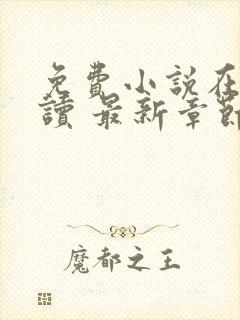 免費小說在
讀 最新章節
魔都之王